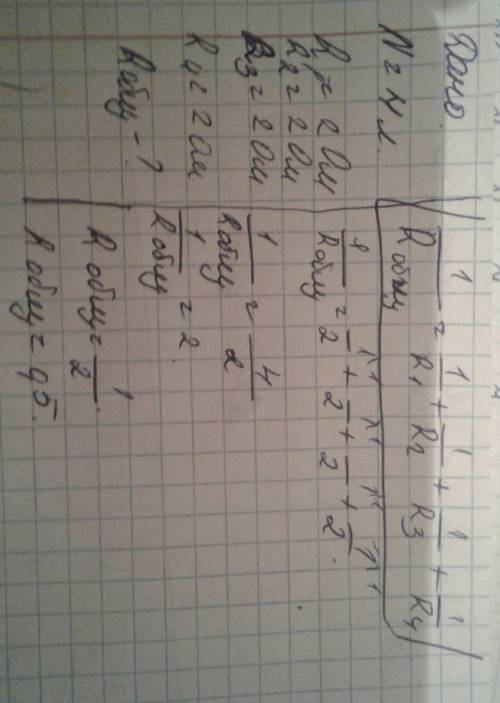 Дано:
N = 4 л.
R1 = 2 Ом
R2 = 2 Ом
R3 = 2 Ом
R4 = 2 Ом
Rобщ - ?
1/Rобщ = 1/R1 + 1/R2 + 1/R3 + 1/R4
1/Rобщ = 1/2 + 1/2 + 1/2 + 1/2.
1/Rобщ = 4/2
1/Rобщ = 2.
Rобщ = 1/2.
Rобщ = 0,5.